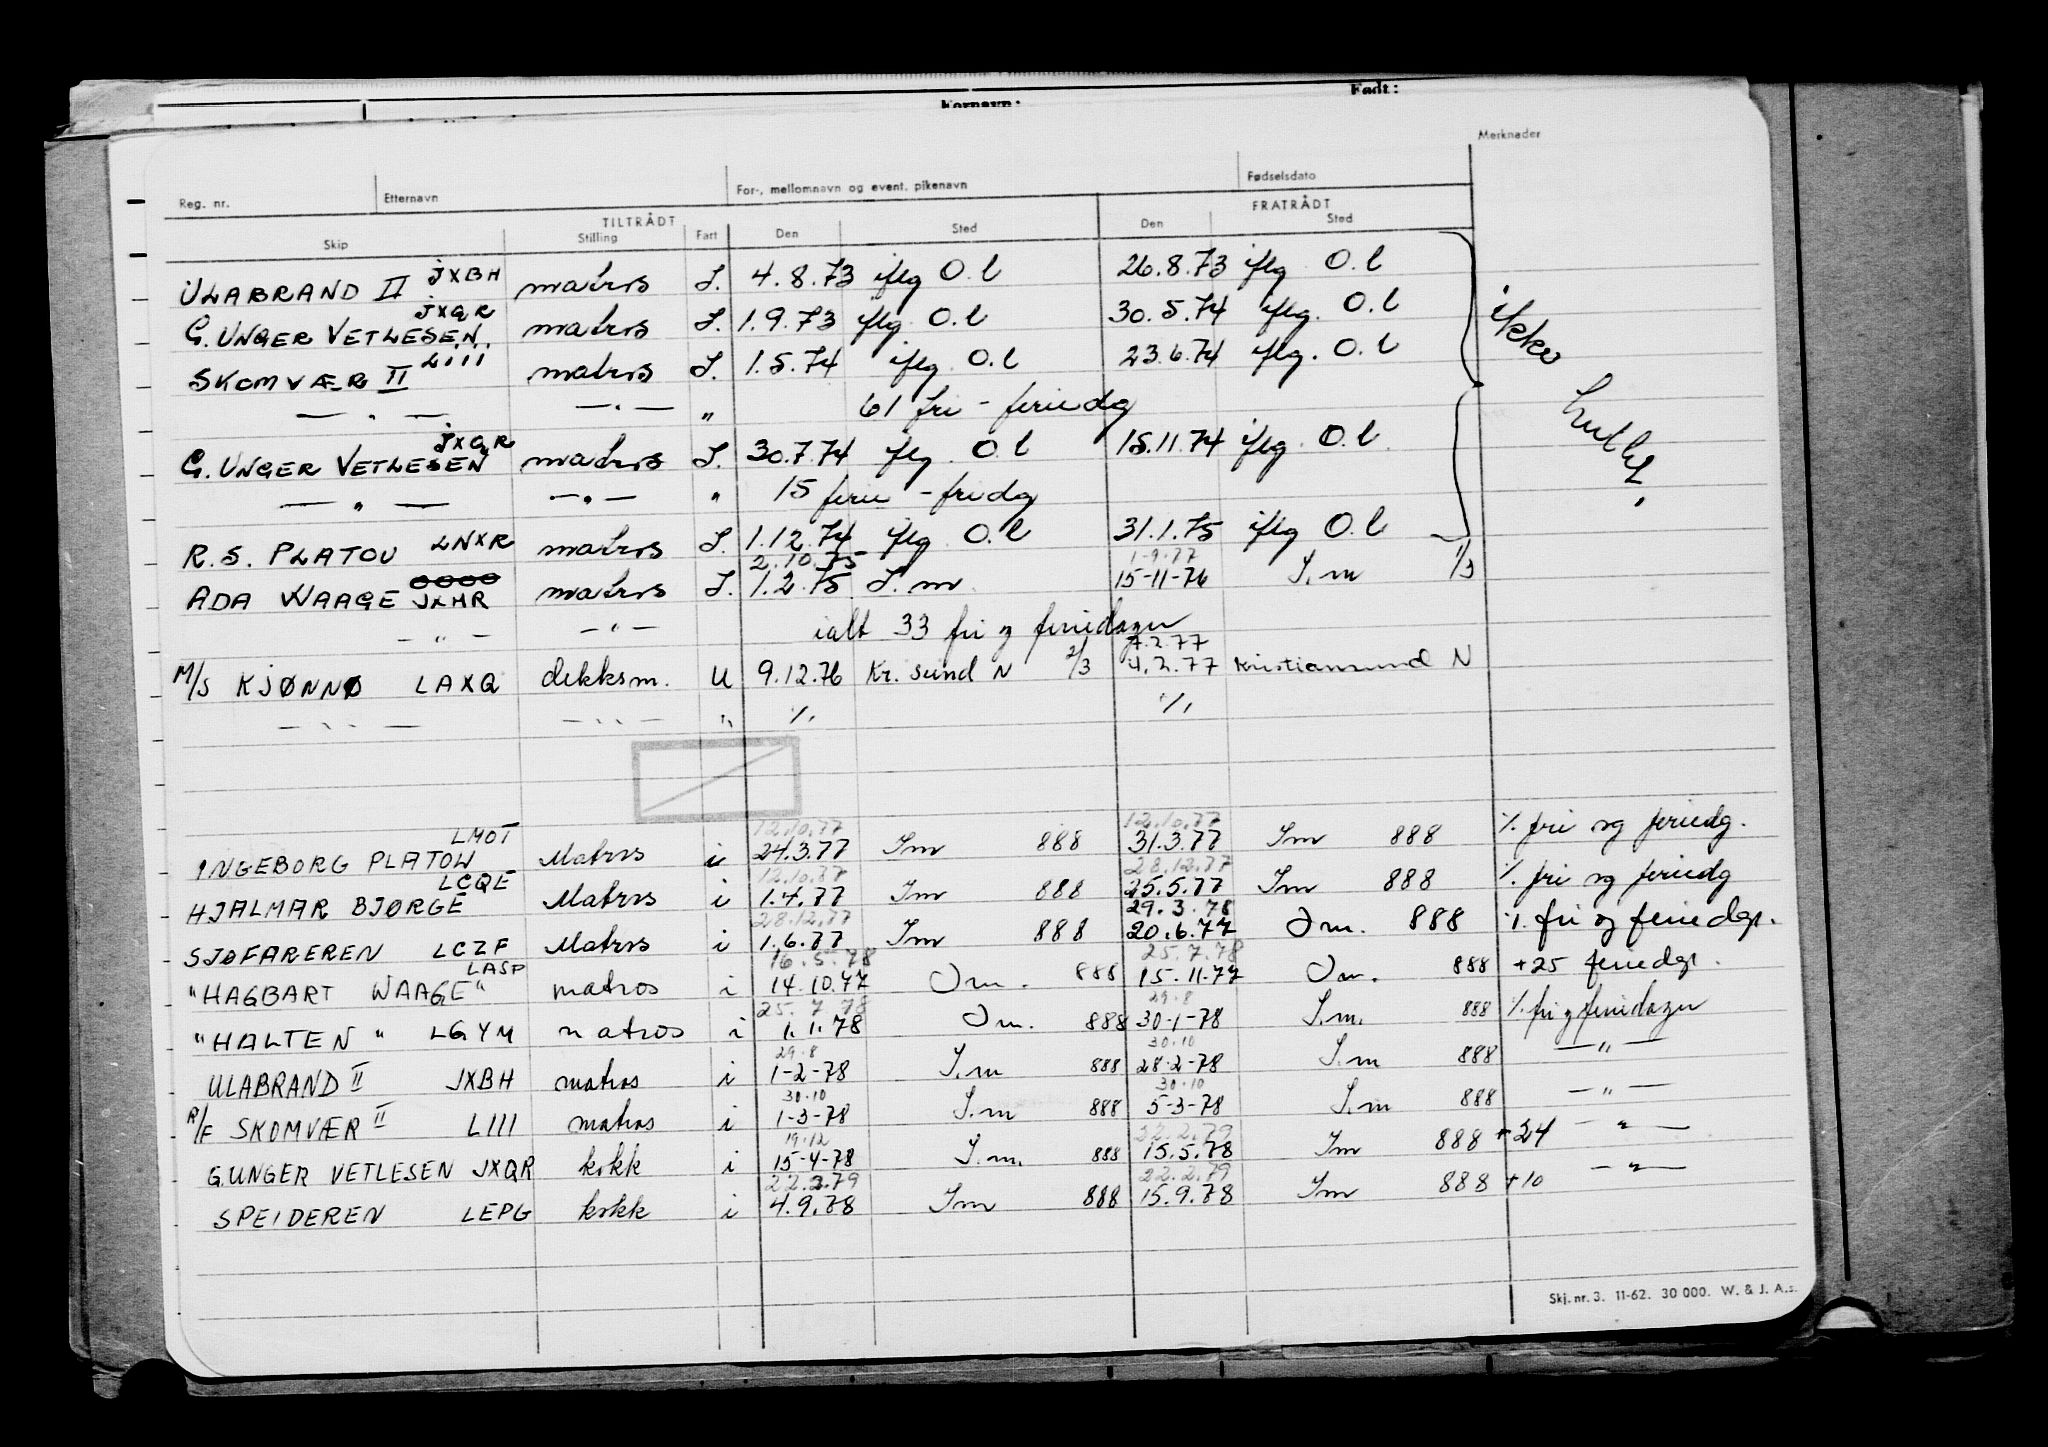 Fornavn: Født:
Merknader
Reg. nr. Etternavn For-, mellomnavn og event. pikenavn Fødselsdato
TILTRÅDT FRATRÅDT
Skip Stilling Fart Den Sted Den Sted
ULABRAND II JXBH matros I. 4.8.73 iflg O.l 26.8.73 iflg O.l
G. UNGER VETLESEN JXQR matros I. 1.9.73 iflg. O.l 30.5.74 iflg. O.l
SKOMVÆR II LIII matros I. 1.5.74 iflg O.l 23.6.74 iflg. O.l
— " — — " — " 61 fri - feriedg
G. UNGER VETLESEN JXQR matros I. 30.7.74 iflg. O.l 15.11.74 iflg. O.l
— " — — " — " 15 ferie - fridg
R.S. PLATOU LNXR matros I. 1.12.74 iflg. O.l 31.1.75 iflg O.l
ikke
2.10.75 1-9-77
ADA WAAGE JXHR matros I. 1.2.75 I.m. 15-11-76 I.m 1/3
— " — — " — ialt 33 fri og feriedager
4.2.77
M/S KJØNNØ LAXQ dekksm. U 9.12.76 Kr.sund N 2/3 4.2.77 Kristiansund N
— " — — " — " %, %,
12.10.77 12.10.77
INGEBORG PLATOU LMOT Matros i 24.3.77 Im 888 31.3.77 Im 888 %. fri og feriedg.
12.10.77 28.12.77
HJALMAR BJØRGE LCQE Matros i 1.4.77 Im 888 25.5.77 Im 888 %. fri og feriedg
28.12.77 29.3.78
SJØFAREREN LCZF Matros i 1.6.77 Im 888 20.6.77 Im. 888 %. fri og feriedgr.
16.5.78 25.7.78
"HAGBART WAAGE" LASP matros i 14.10.77 Im. 888 15.11.77 Im. 888 +25 feriedgr.
25.7.78 29.8
"HALTEN" LGYM matros i 1.1.78 Im. 888 30-1-78 I.m. 888 %. fri og feriedager
29.8 30.10
ULABRAND II JXBH matros i 1-2-78 I.m 888 28-2-78 I.m 888 — " —
30.10 30.10
R/F SKOMVÆR II LIII matros i 1-3-78 I.m 888 5-3-78 I.m 888 — " —
19.12 22.2.79
G.UNGER VETLESEN JXQR kokk i 15-4-78 I.m. 888 15.5.78 Im 888 +24 — " —
22.2.79 22.2.79
SPEIDEREN LEPG kokk i 4.9.78 Im 888 15.9.78 Im 888 +10 — " —
Skj. nr. 3. 11-62. 30 000. W. & J. A.s.